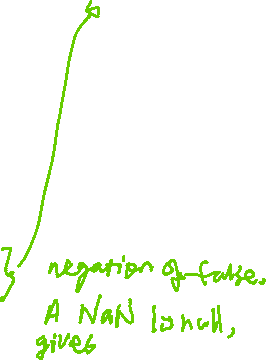 negation of false.
A NaN lunch,
gives